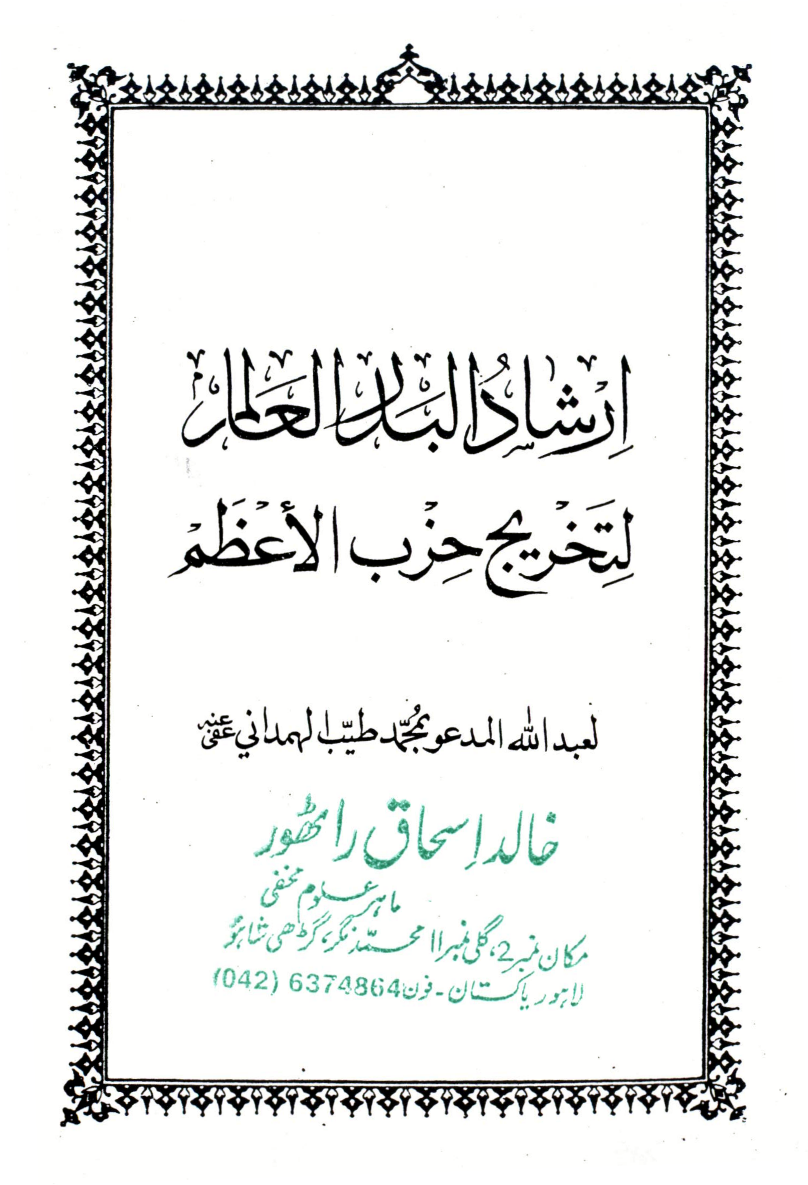 اِرْشَادُ الْبَارِ الْعَالِمْ
لِتَخْرِيجِ حِزْبِ الأَعْظَمْ
لعبد الله المدعو بمُحَمَّد طيّب الهمداني عفی عنہ
خالد إسحاق راٹھور
ماہر علوم مخفی
مکان نمبر 2، گلی نمبر 11 محمّد نگر، گڑھی شاہو
لاہور پاکستان - فون 6374864 (042)